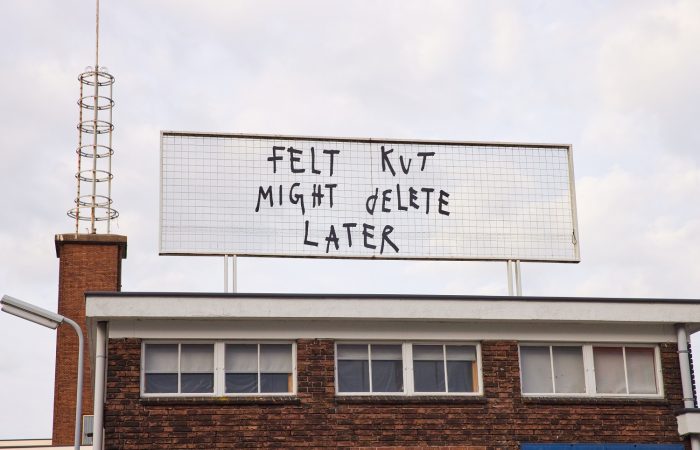 FELT KUT
MIGHT dELETE
LATER